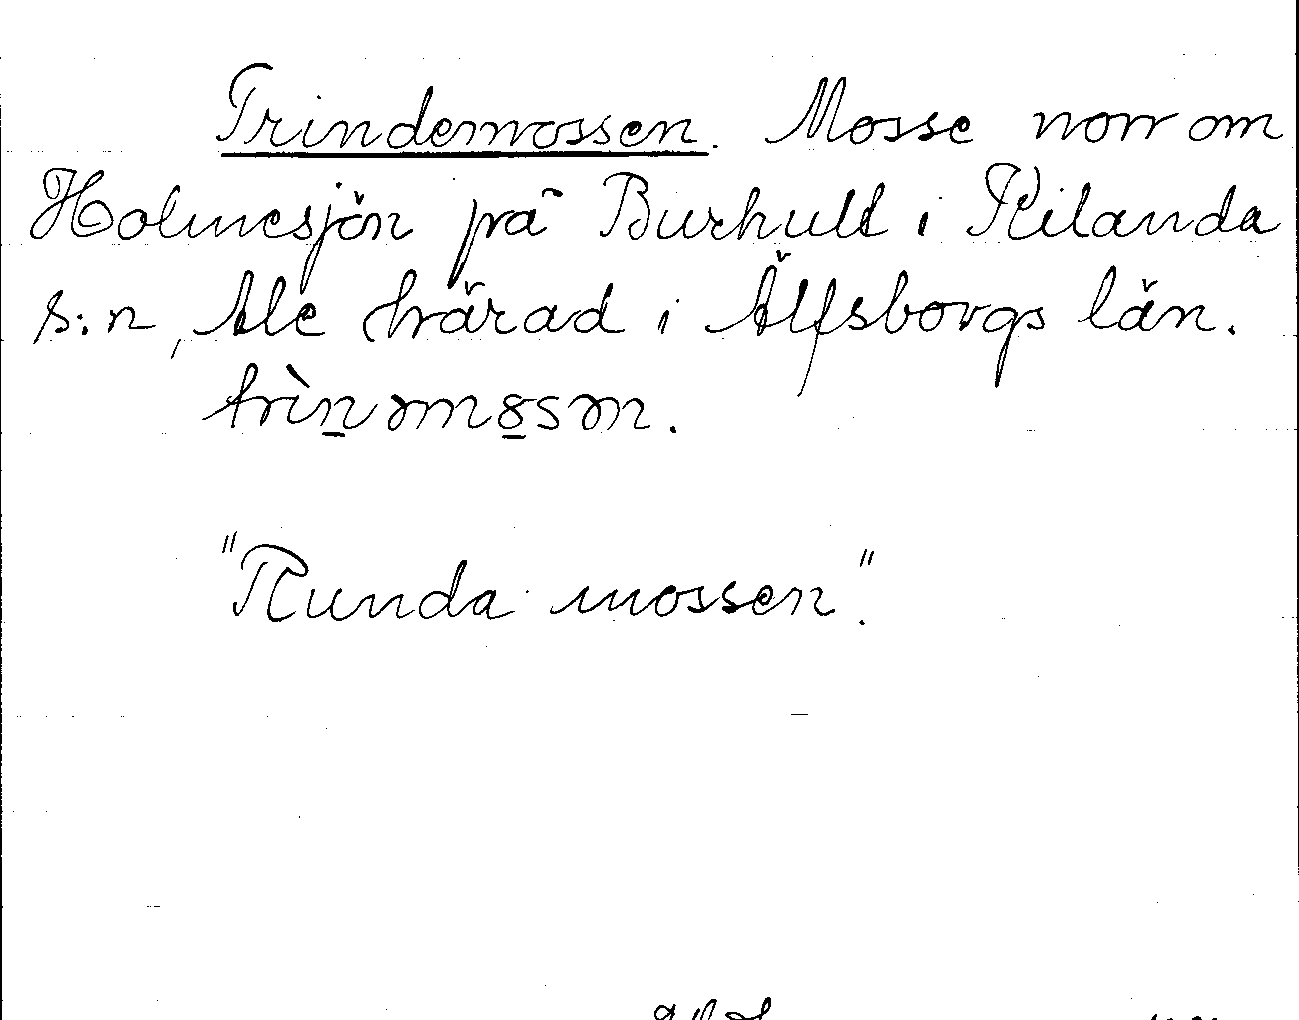 Trindemossen. Mosse norr om
Holmesjön på Burhult i Kilanda
s:n, Ale härad i Älfsborgs län.
trìn̲əmo̲sən.
"Runda mossen".